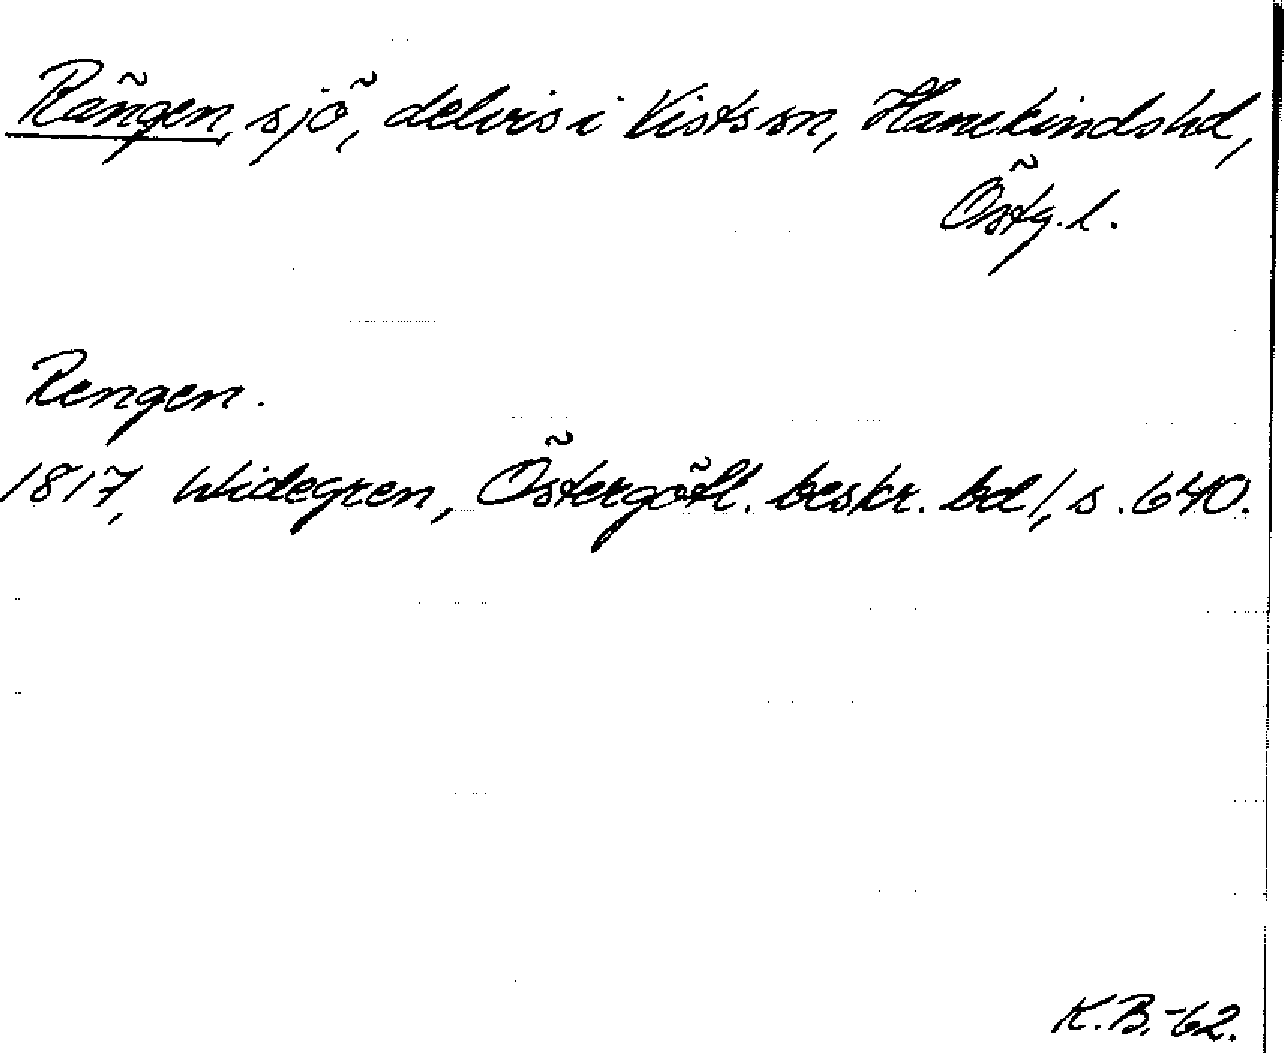 Rängen, sjö, delvis i Vists sn, Hanekinds hd,
Östg. l.
Rengen.
1817, Widegren, Östergötl. beskr. bd 1, s. 640.
K.B.-62.